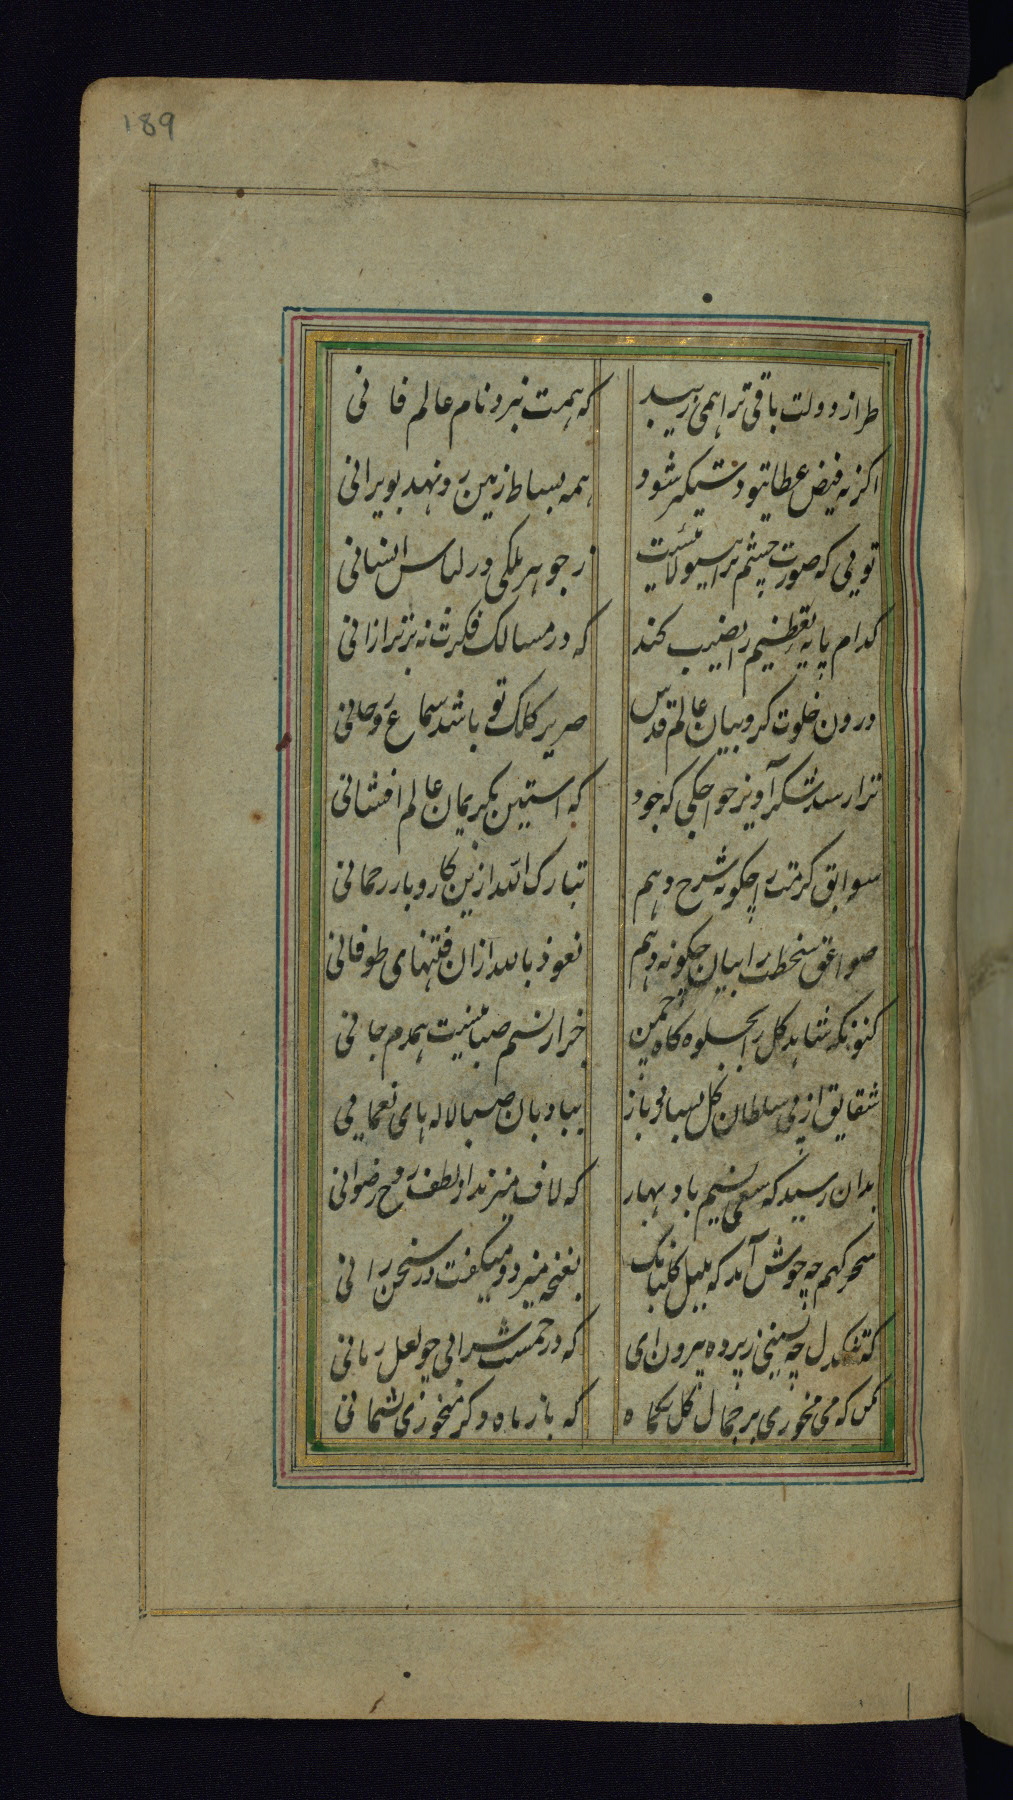 189
طراز دولت باقی ترا همی زیبد که همت نبرد نام عالم فانی
اکر نه فیض عطایتو دستیکر شود همه بساط زمین رو نهد بویرانی
تویی که صورت جسم ترا هیولا نیست ز جوهر ملکی در لباس انسانی
کدام پایه تعظیم را نصیب کند که در مسالک فکرت نه برتر از آنی
درون خلوت کروبیان عالم قدس صریر کلک تو باشد سماع روحانی
ترا رسد شکر آویز خواجکی که جود که استین بکریمان عالم افشانی
سوابق کرمت را چکونه شرح دهم تبارک الله از این کار و بار رحمانی
صواعق سخطت را بیان چکونه دهم نعوذ بالله از ان فتنهای طوفانی
کنونکه شاهد کل را بجلوه کاه چمن جز از نسیم صبا نیست همدم جانی
شقایق از پی سلطان کل سپارد باز ببادبان صبا لاله های نعمانی
بدان رسید که سعی نسیم باد بهار که لاف میزند از لطف روح رضوانی
سحر کهم چه خوش آمد که بلبل کلبانک بغنچه میزد و میکفت در سخن رانی
که تنکدل چه نشینی ز پرده بیرون ای که در خمست شرابی چو لعل رمانی
مکن که می نخوری بر جمال کل یکماه که باز ماه دکر میخوری پشیمانی